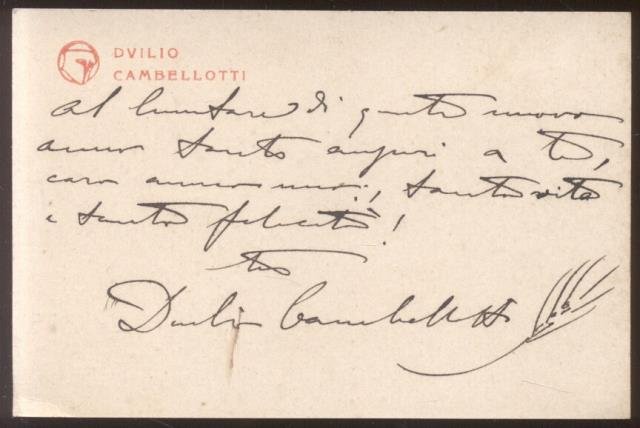 DVILIO
CAMBELLOTTI
Al limitare di questo nuovo
anno tanti auguri a te,
caro amico mio, tanta vita
e tanta felicità!
tuo
Duilio Cambellotti